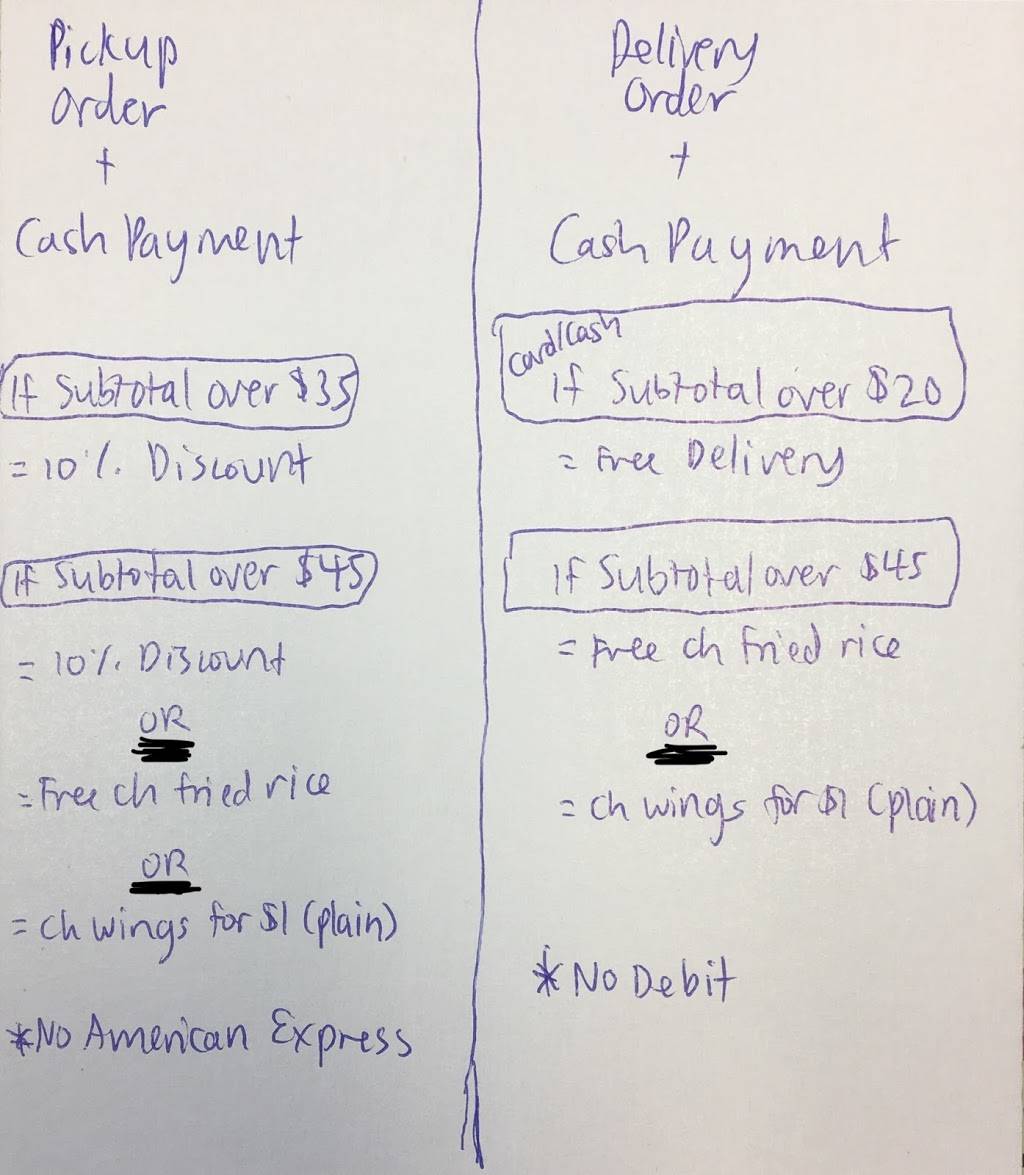 Pickup
Order
+
Cash Payment
If Subtotal over $35
= 10% Discount
If Subtotal over $45
= 10% Discount
OR
= Free ch fried rice
OR
= Ch wings for $1 (plain)
*No American Express
Delivery
Order
+
Cash Payment
Card/Cash
If Subtotal over $20
= Free Delivery
If Subtotal over $45
= Free ch fried rice
OR
= Ch wings for $1 (plain)
*No Debit